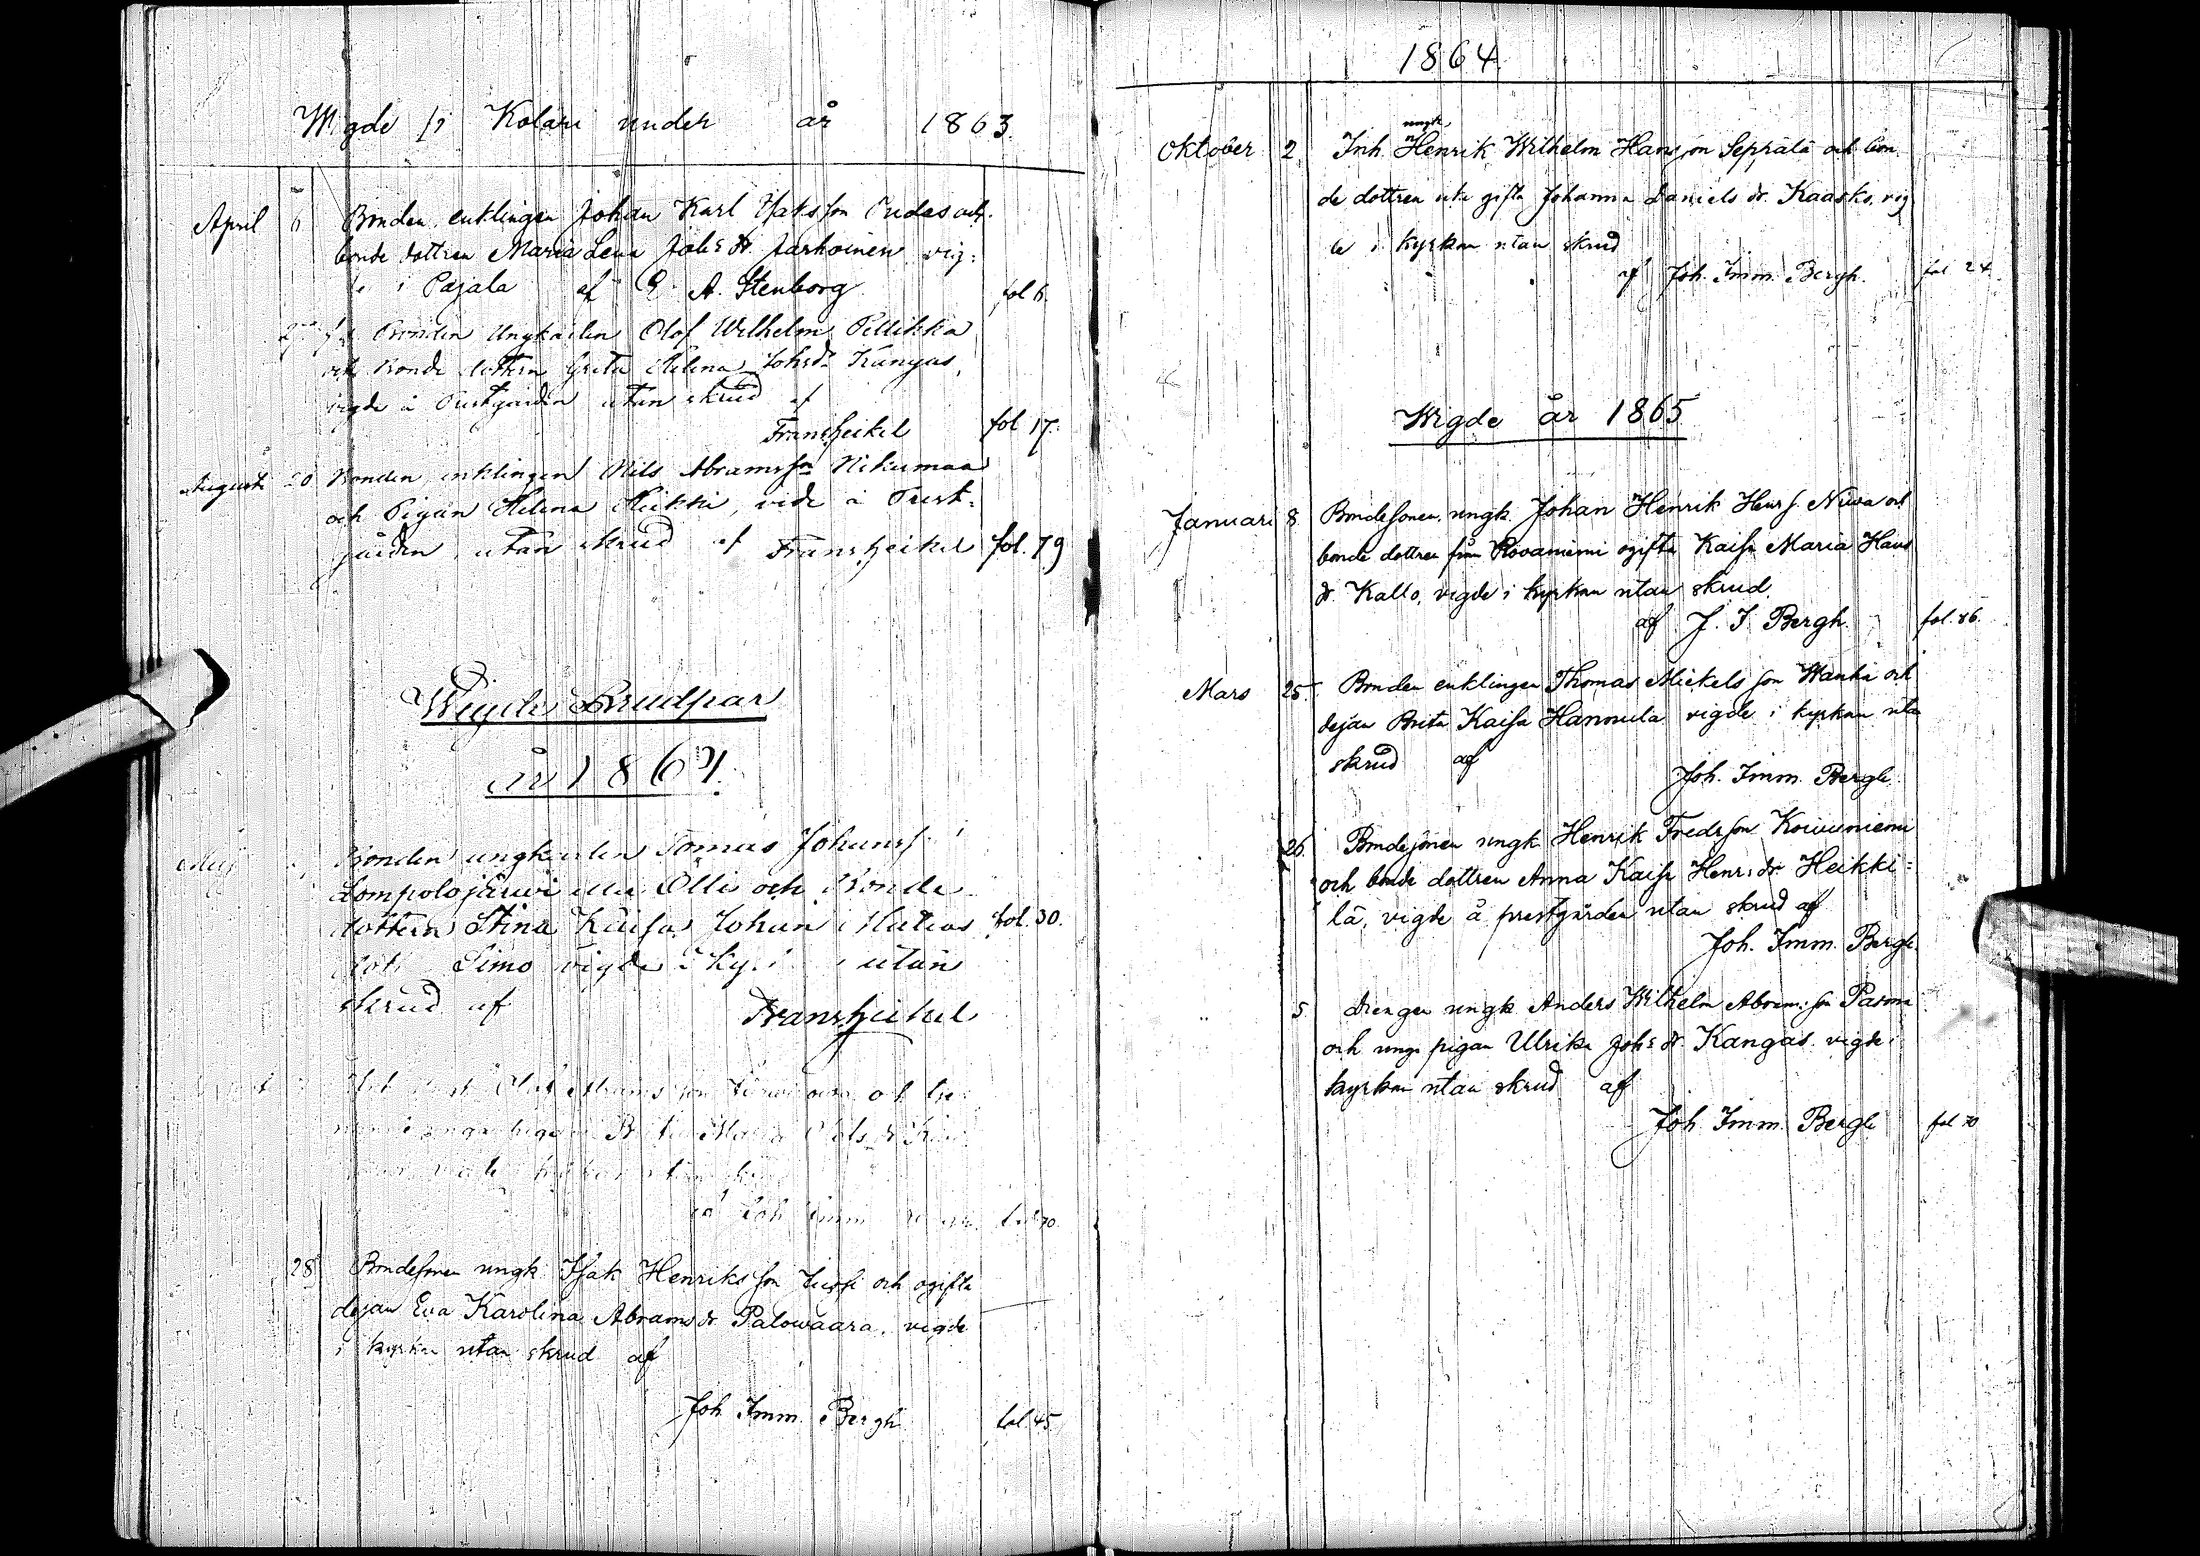 Wigde fr Kolari under år 1863.
April 6 Bonden enklingen Johan Karl Isaksson Oudas och
bonde dottren Maria Lena Johs dr Jarhoinen vig:
de i Pajala af E. A. Stenborg fol 6.
Bonden Ungkarlen Olof Wilhelm Pellikka
och Bonde dottren Greta Helena Johsdr Kangas,
vigde å Prestgården utan skrud af
Franszeikel fol 17.
Augusti 20 Bonden enklingen Nils Abramsson Nikumaa
och Pigan Helena Heikki, vide å Prest-
gården, utan skrud af Franszeikel fol. 79
Wigde Brudpar
år 1864.
Maj Bonden ungkarlen Tomas Johanss
Lompolojärwi eller Olli och Bonde
dottern Stina Kaisa Johan Matias fol. 30.
dot. Simo vigde i utan
skrud af Franszeikel
Olof Abrams son
pigan Brita Maria
af Joh Imm fol 70.
28 Bondesonen ungk Isak Henriksson Jussi och ogifta
dejan Eva Karolina Abrams dr Palowaara. vigde
i kyrkan utan skrud af
Joh Imm. Bergh fol. 45
1864.
ungk.
Oktober 2 Inh. Henrik Wilhelm Hansson Seprälä och bon
de dottren icke gifta Johanna Daniels dr. Kaasko, vig
de i kyrkan utan skrud
af Joh. Imm. Bergh. fol 24.
Wigde år 1865
Januari 8 Bondesonen, ungk. Johan Henrik Henr s. Niwa och
bonde dottren från Rovaniemi ogifta Kaisa Maria Hans
dr. Kallo, vigde i kyrkan utan skrud.
af J. I Bergh. fol. 86.
Mars 25. Bonden enklingen Thomas Mickels son Wanha och
dejan Brita Kaisa Hannula vigde i kyrkan utan
skrud af
Joh. Imm. Bergh.
26. Bondesonen ungk Henrik Fredsson Koivuniemi
och bonde dottren Anna Kaisa Henrs dr. Heikki-
lä, vigde å prestgården utan skrud af
Joh. Imm. Bergh
5 Drengen ungk Anders Wilhelm Abram: son Parma
och unga pigan Ulrika Johs dr. Kangas vigde i
kyrkan utan skrud af
Joh. Imm. Bergh fol 70